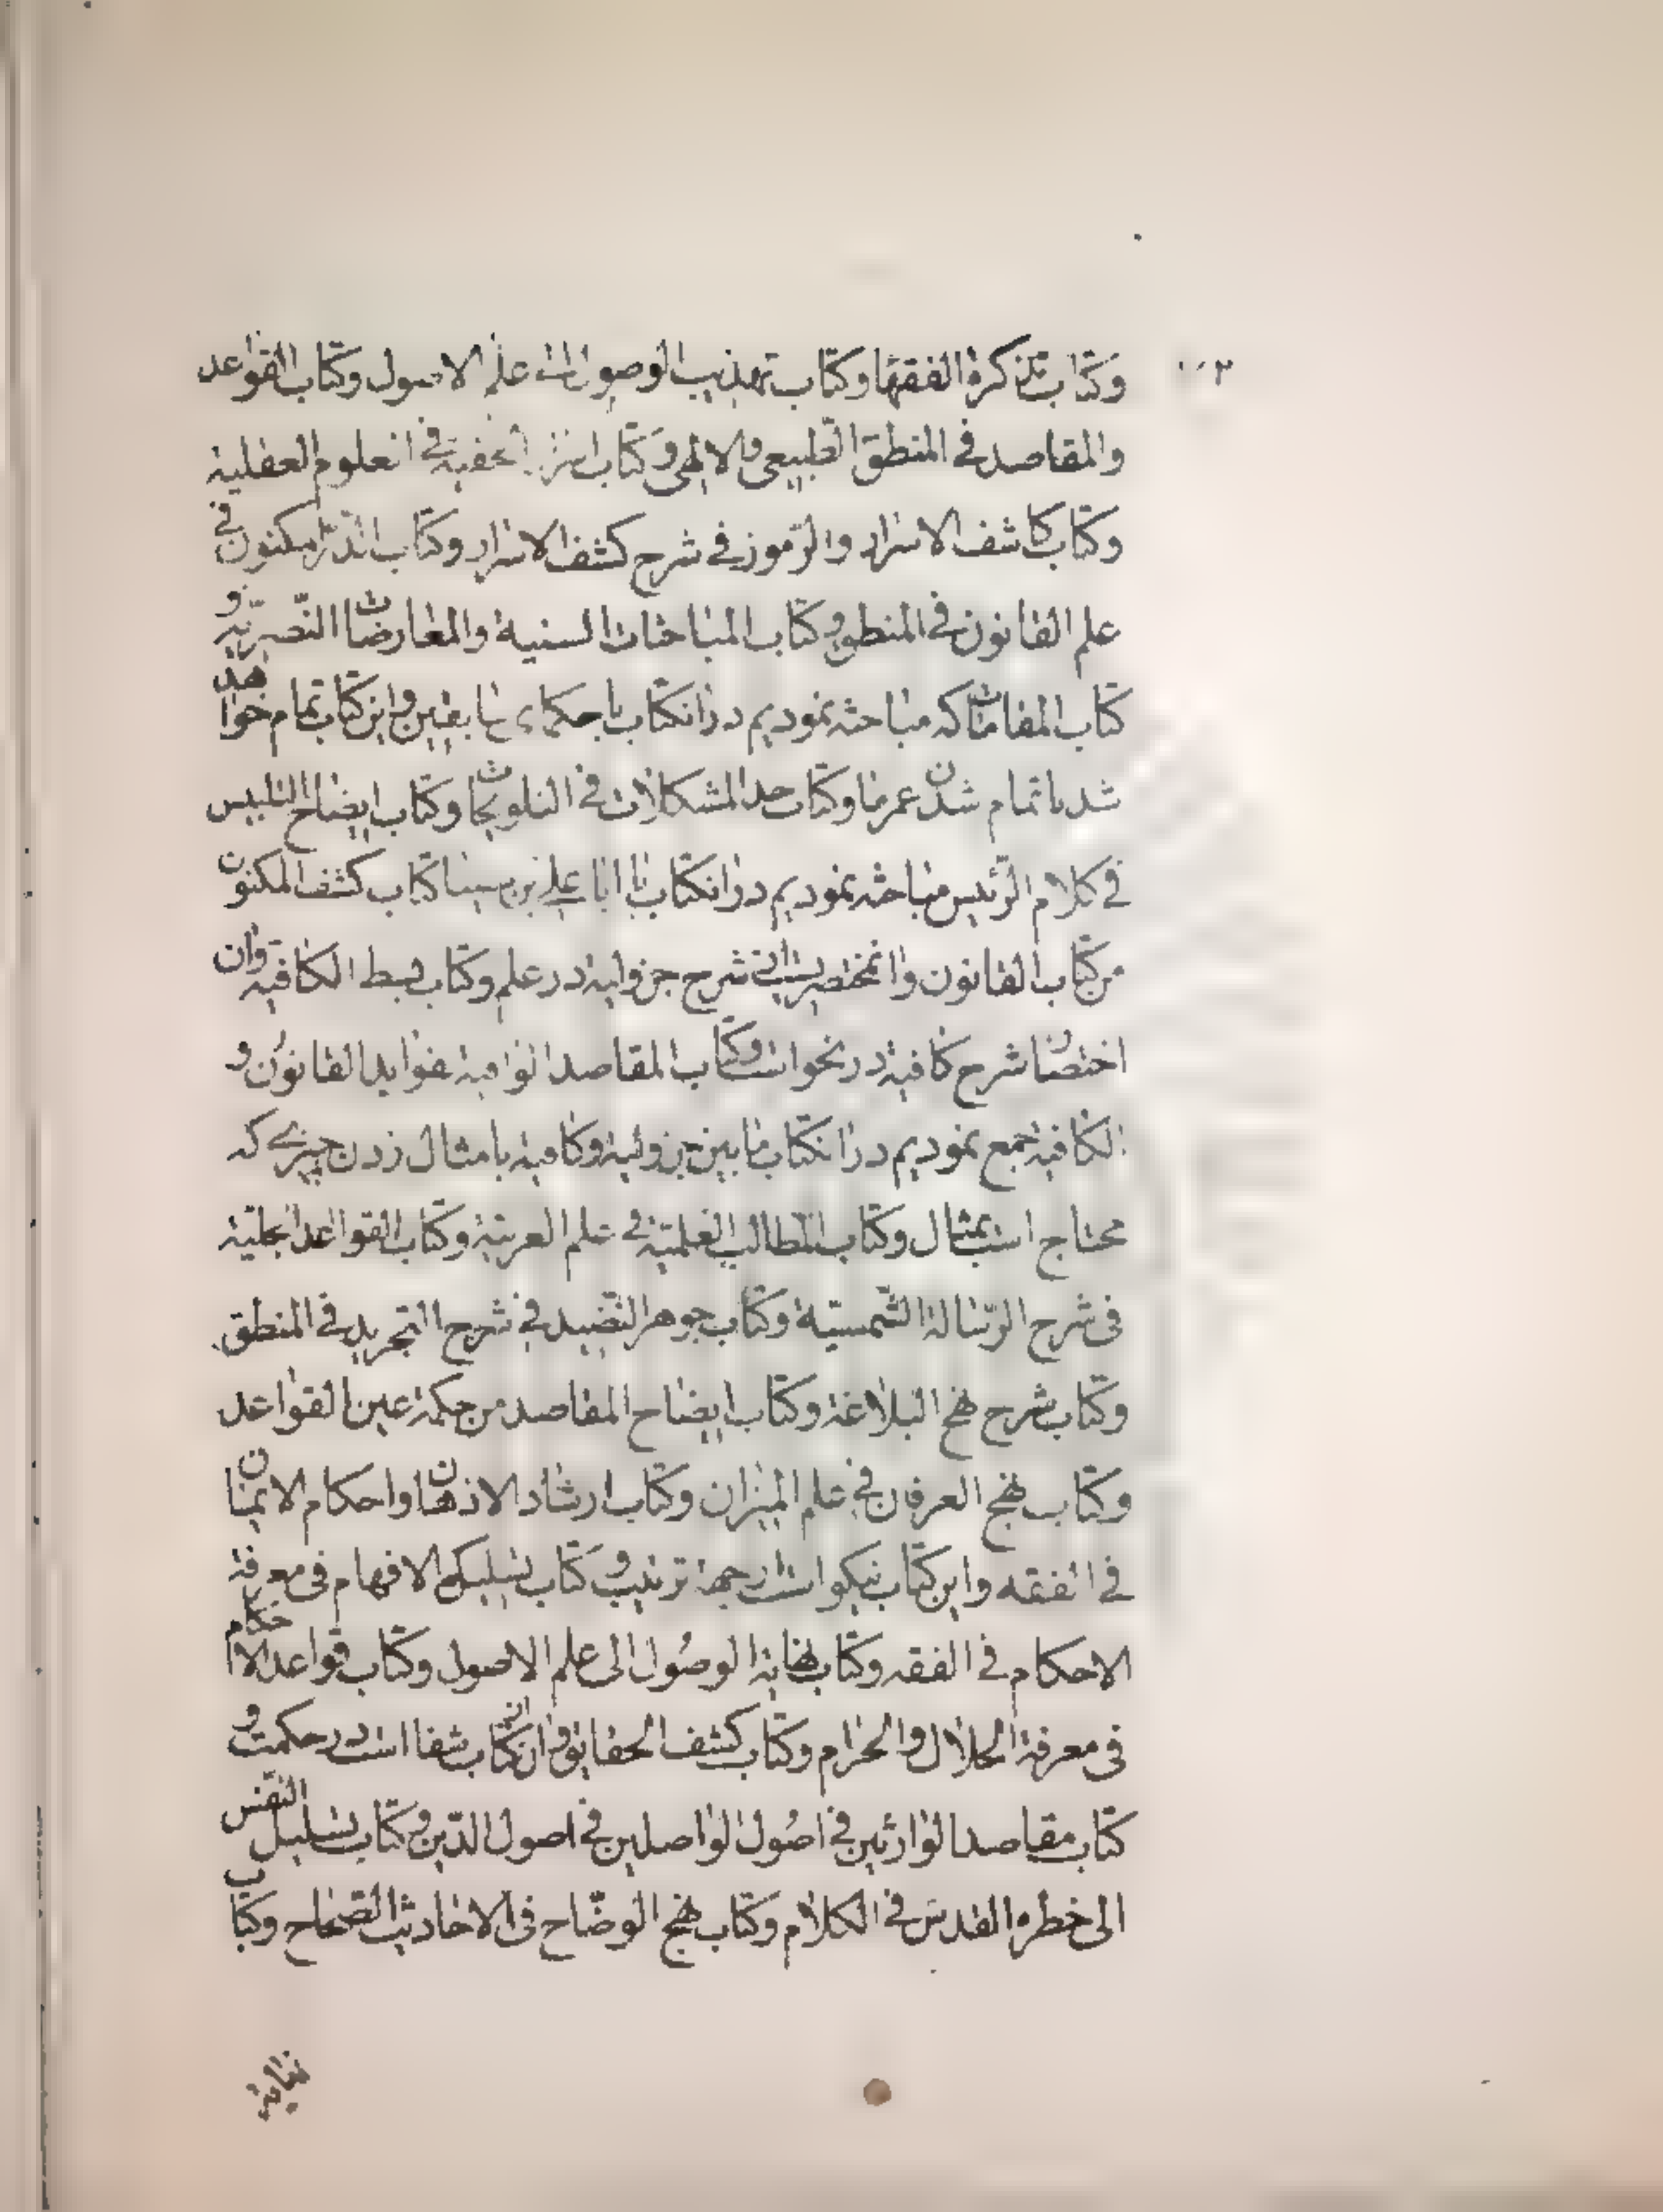 وکتاب تذکرة الفقها وکتاب تهذیب الوصول الی علم الاصول وکتاب القواعد
والمقاصد فی المنطق الطبیعی والالهی وکتاب الخفیة فی العلوم العقلیة
وکتاب کاشف الاسرار والرّموز فی شرح کشف الاسرار وکتاب الدّر المکنون فی
علم القانون فی المنطق وکتاب المباحثات السنیة والمعارضات النّصیریّة و
کتاب المقامات که مباحثه نمودیم در انکتاب با حکمای سابقین واین کتاب تمام خواهد
شد با تمام شدن عمر ما وکتاب حل المشکلات فی التلویحات وکتاب ایضاح التلبیس
فی کلام الرّئیس مباحثه نمودیم در انکتاب با ابا علی بن سینا کتاب کشف المکنون
من کتاب القانون وان مختصر شرح جزولیه در علم وکتاب بسط الکافیه وان
اختصار شرح کافیه در نحو است وکتاب المقاصد الوافیة بفواید القانون و
الکافیة جمع نمودیم در انکتاب مابین جزولیه وکافیه با مثال زدن چیزی که
محتاج است بمثال وکتاب المطالب العلیّة فی علم العربیّة وکتاب القواعد الجلیّة
فی شرح الرّسالة الشّمسیّة وکتاب جوهر النّضید فی شرح التجرید فی المنطق
وکتاب شرح نهج البلاغة وکتاب ایضاح المقاصد من حکمة عین القواعد
وکتاب نهج العرفان فی علم المیزان وکتاب ارشاد الاذهان واحکام الایمان
فی الفقه واین کتاب نیکو است جهة ترتیب وکتاب تسلیک الافهام فی معرفة
الاحکام فی الفقه وکتاب نهایة الوصُول الی علم الاصول وکتاب قواعد الاحکام
فی معرفة الحلال والحرام وکتاب کشف الحقایق وان کتاب شفا است در حکمت و
کتاب مقاصد الوارثین فی اصُول الواصلین فی اصول الدّین وکتاب تسلیل النّفس
الی خطره القدس فی الکلام وکتاب نهج الوضّاح فی الاحادیث الصّحاح وکتاب
نهایة